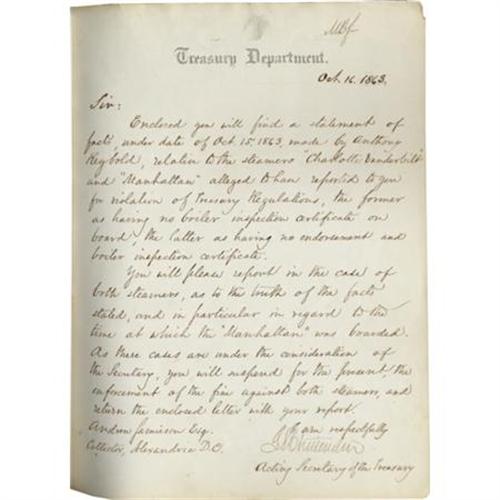 MBf
Treasury Department.
Oct. 16. 1863.
Sir:
Enclosed you will find a statement of
facts, under date of Oct. 15. 1863, made by Anthony
Reybold, relative to the steamers "Charlotte Vanderbilt"
and "Manhattan" alleged to have reported to you
for violation of Treasury Regulations, the former
as having no boiler inspection certificate on
board, the latter as having no endorsement and
boiler inspection certificate.
You will please report in the case of
both steamers, as to the truth of the facts
stated, and in particular in regard to the
time at which the "Manhattan" was boarded.
As these cases are under the consideration of
the Secretary, you will suspend for the present, the
enforcement of the fine against both steamers, and
return the enclosed letter with your report.
Andrew Jamieson Esq.
I am respectfully
Collector, Alexandria D.C.
Acting Secretary of the Treasury